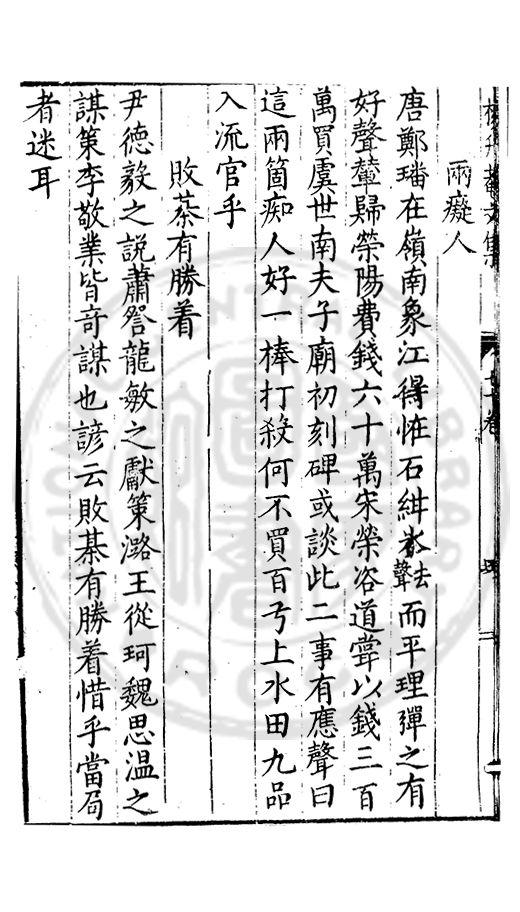 兩癡人
唐鄭璠在嶺南象江得怪石紺氷去聲而平理彈之有
好聲輦歸滎陽費錢六十萬宋榮咨道嘗以錢三百
萬買虞世南夫子廟初刻碑或談此二事有應聲曰
這兩箇痴人好一棒打殺何不買百亐上水田九品
入流官乎
敗棊有勝着
尹德毅之説蕭詧龍敏之獻策潞王從珂魏思溫之
謀策李敬業皆竒謀也諺云敗棊有勝着惜乎當局
者迷耳